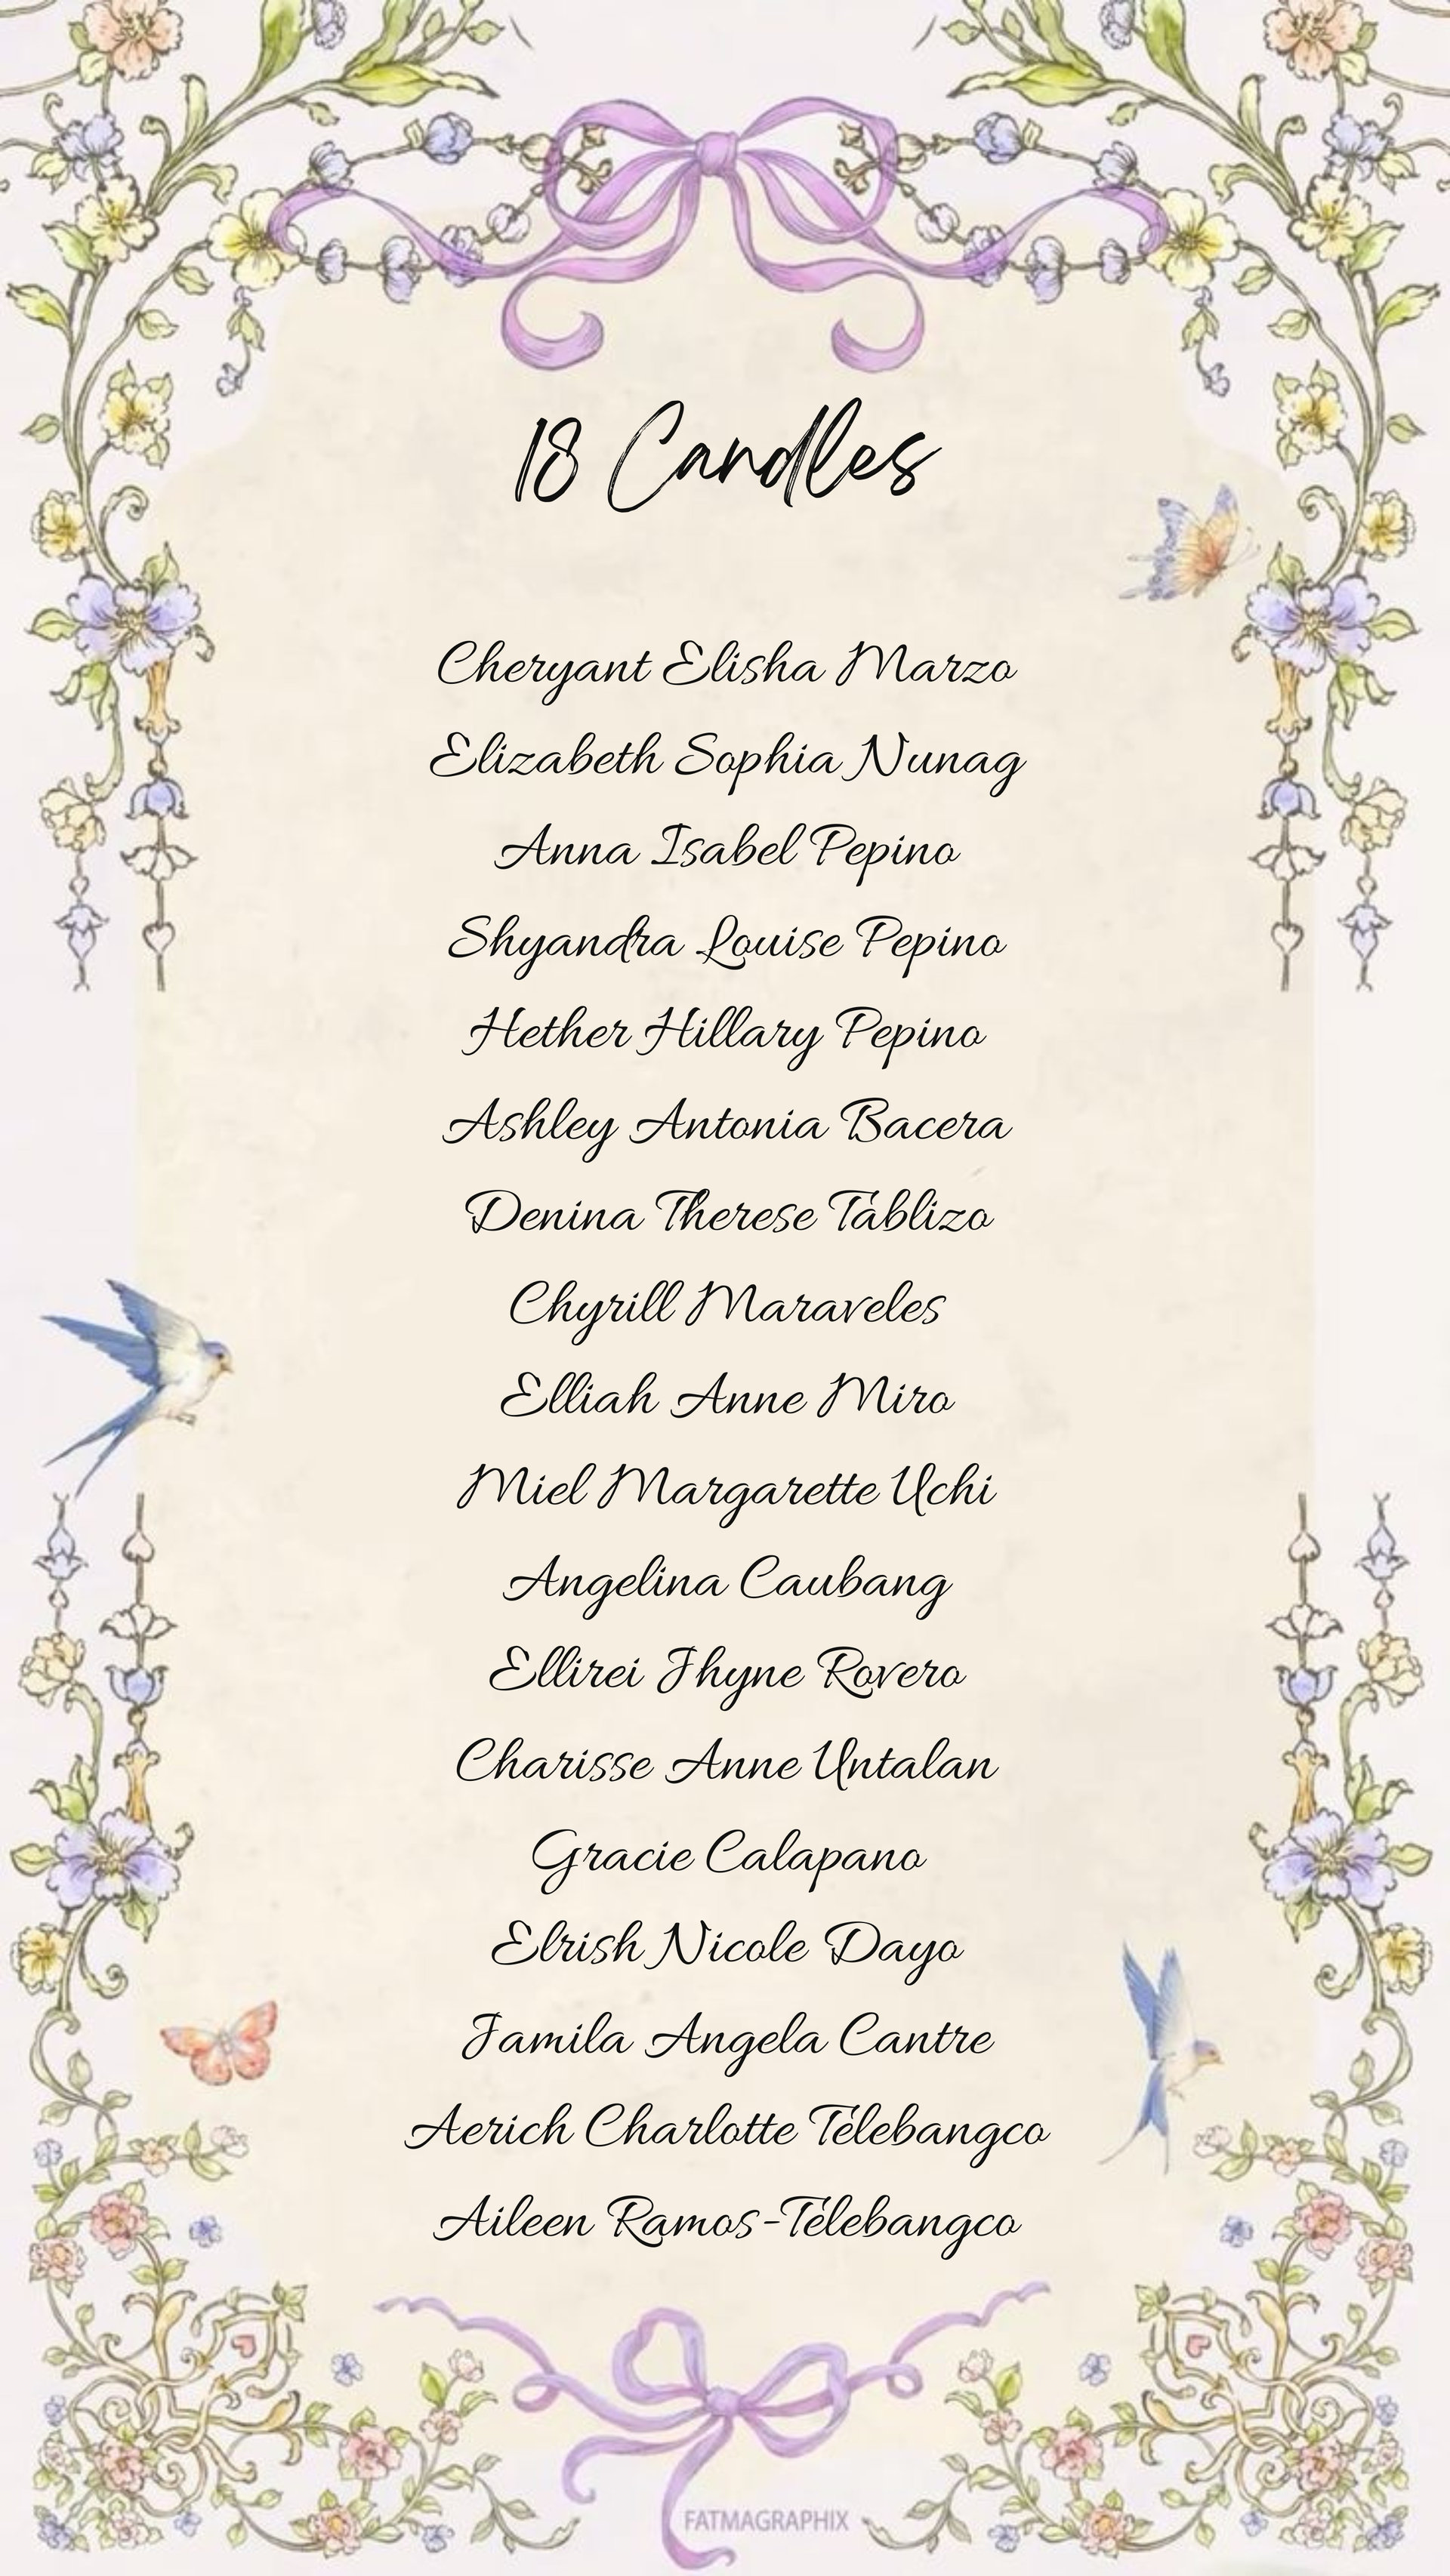 18 Candles
Cheryant Elisha Marzo
Elizabeth Sophia Nunag
Anna Isabel Pepino
Shyandra Louise Pepino
Hether Hillary Pepino
Ashley Antonia Bacera
Denina Therese Tablizo
Chyrill Maraveles
Elliah Anne Miro
Miel Margarette Uchi
Angelina Caubang
Ellirei Jhyne Rovero
Charisse Anne Untalan
Gracie Calapano
Elrish Nicole Dayo
Jamila Angela Cantre
Aerich Charlotte Telebangco
Aileen Ramos-Telebangco
FATMAGRAPHIX